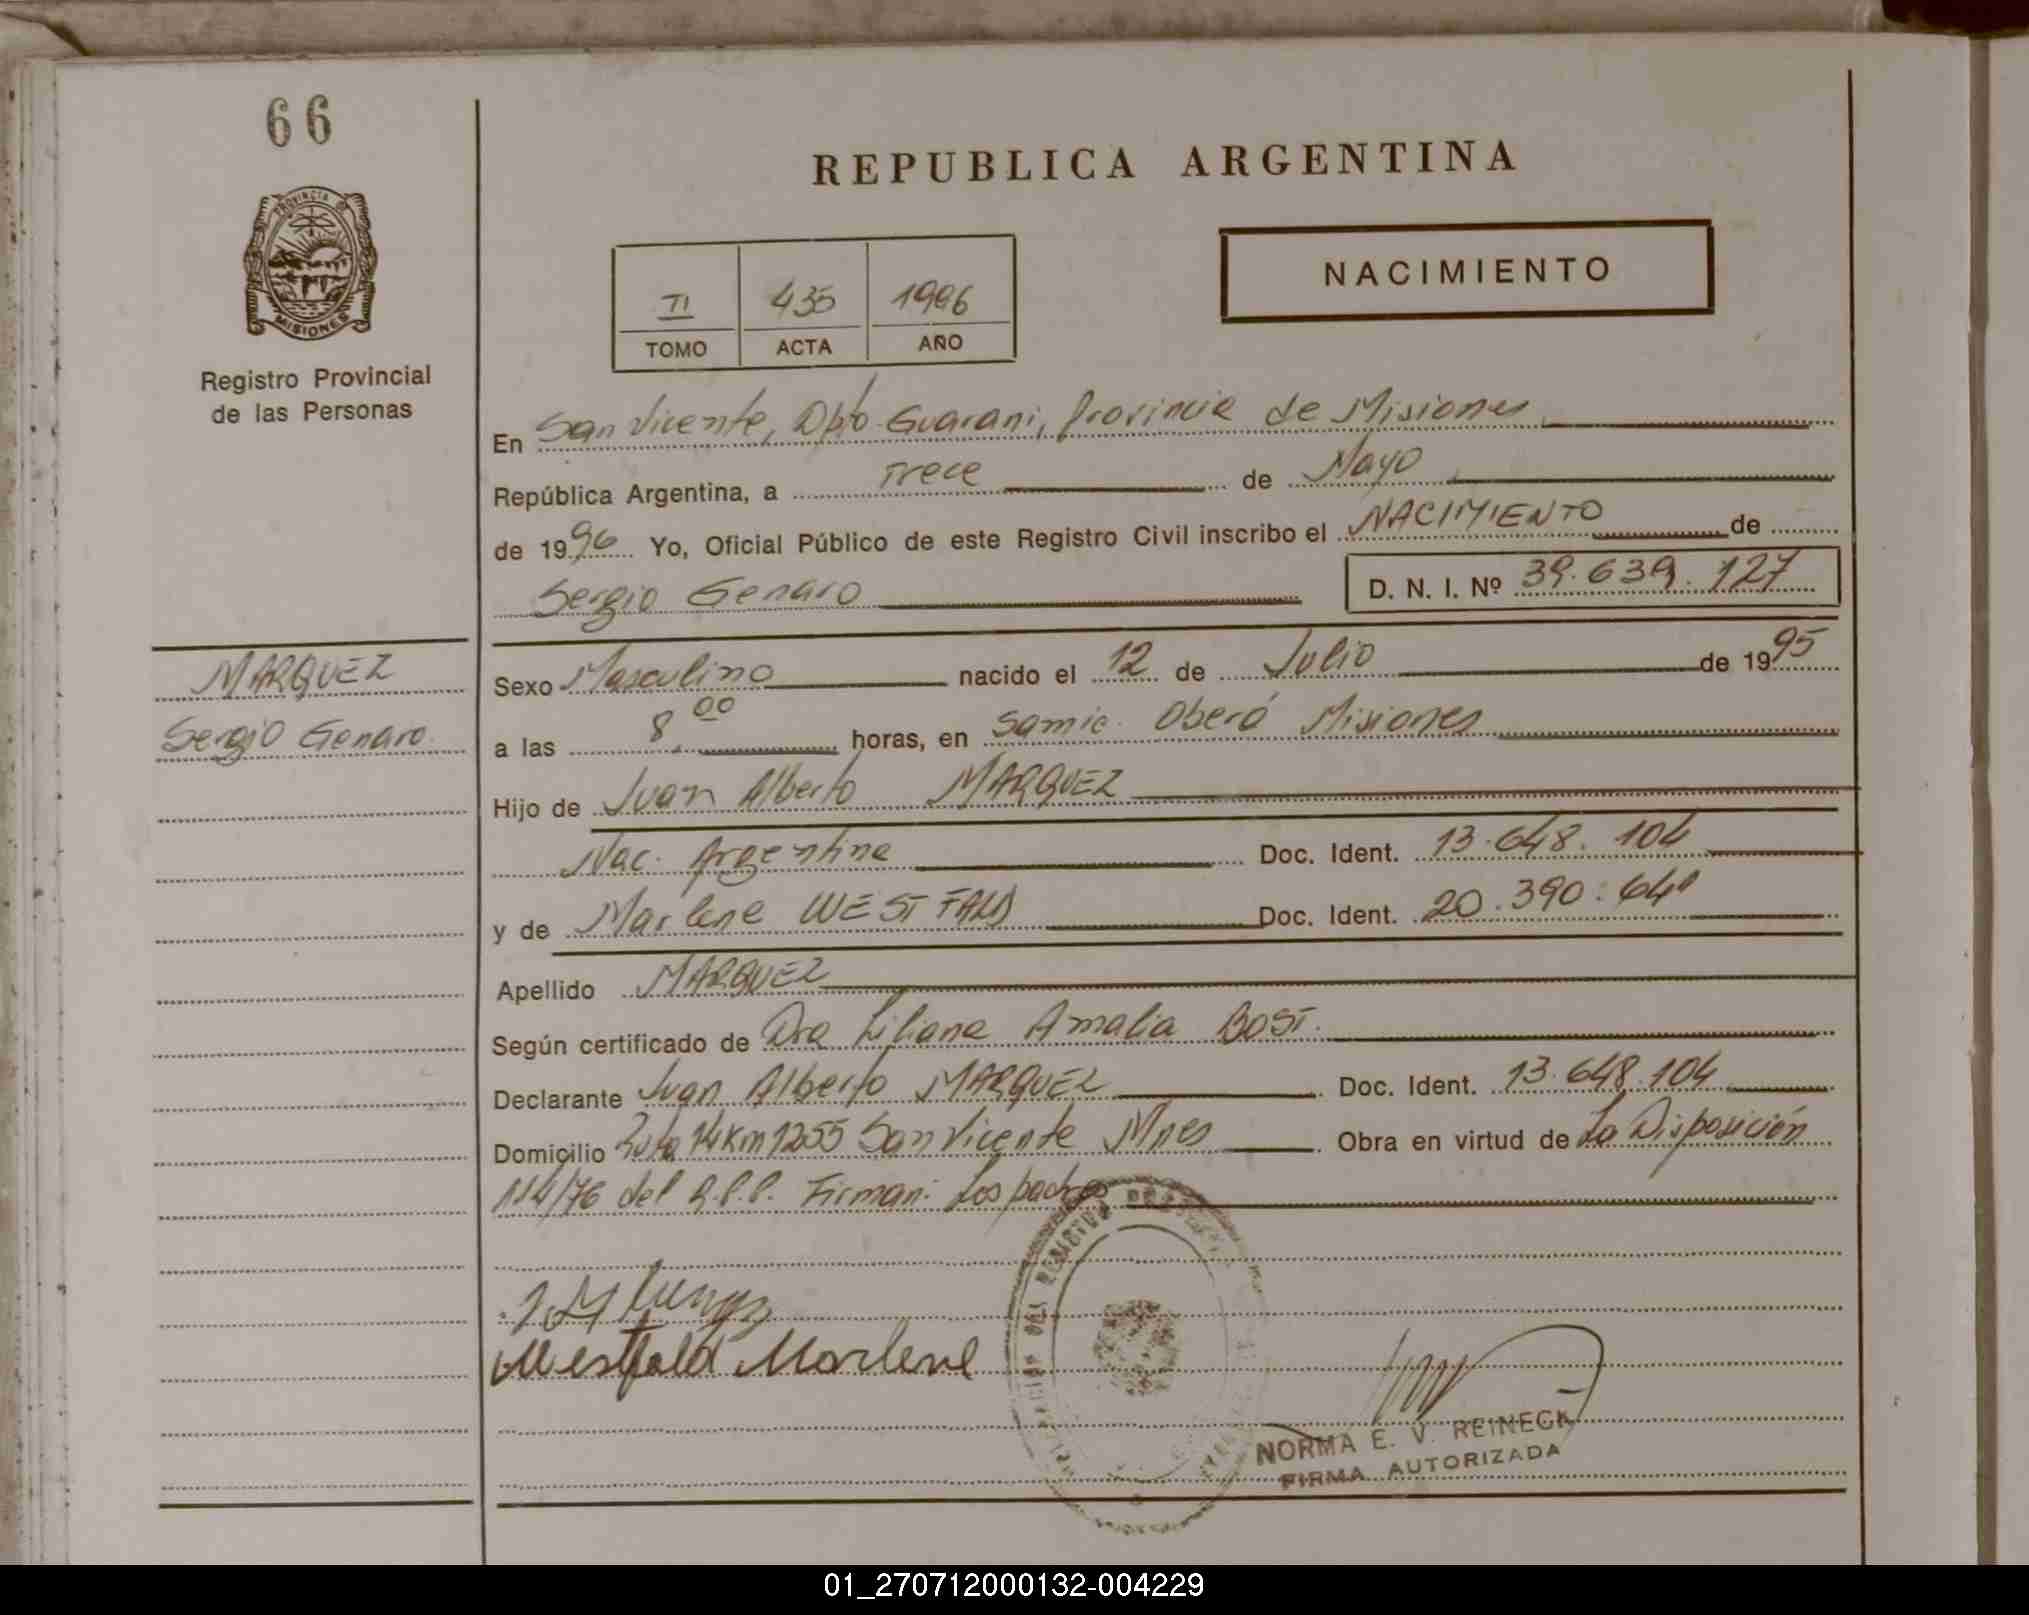 66
PROVINCIA DE
MISIONES
Registro Provincial
de las Personas
MARQUEZ
Sergio Genaro
REPUBLICA ARGENTINA
NACIMIENTO
TI 435 1996
TOMO ACTA AÑO
En San Vicente, Dpto. Guarani, Provincia de Misiones
República Argentina, a Trece de Mayo
de 1996 Yo, Oficial Público de este Registro Civil inscribo el NACIMIENTO de
Sergio Genaro D. N. I. Nº 39.639.127
Sexo Masculino nacido el 12 de Julio de 1995
a las 8,00 horas, en Samic. Oberá Misiones
Hijo de Juan Alberto MARQUEZ
Nac. Argentina Doc. Ident. 13.648.104
y de Marlene WESTFALD Doc. Ident. 20.390.640
Apellido MARQUEZ
Según certificado de Dra Liliana Amalia BOST.
Declarante Juan Alberto MARQUEZ Doc. Ident. 13.648.104
Domicilio Ruta 14 Km 1255 San Vicente Mnes Obra en virtud de La Disposición
114/76 del R.P.P. Firman: Los padres
Westfald Marlene
NORMA E. V. REINECK
FIRMA AUTORIZADA
01_270712000132-004229